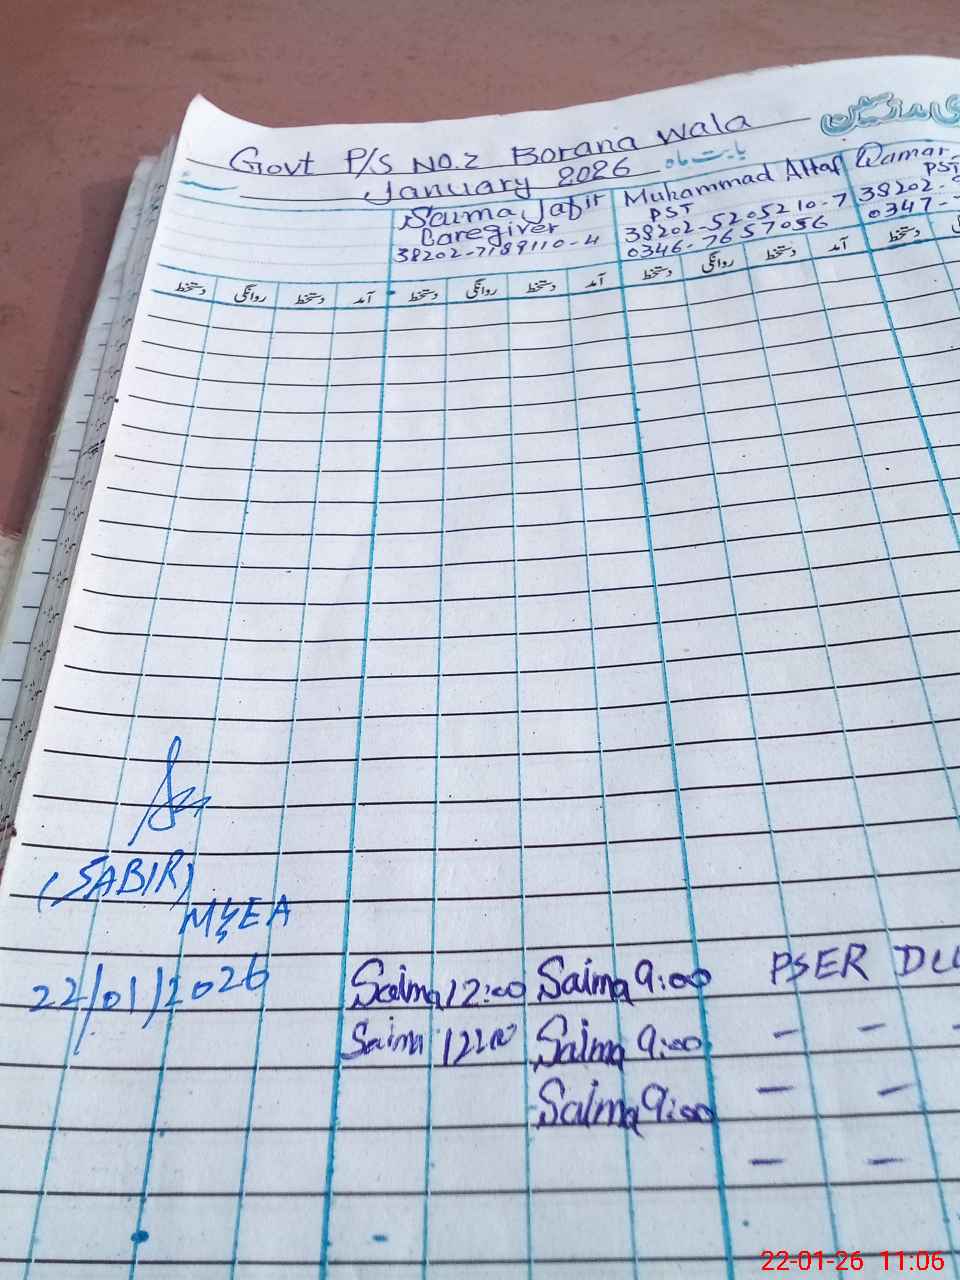 Govt P/S No.2 Borana Wala
بابت ماہ January 2026
سنہ
Saima Jabir
Caregiver
38202-7189110-4
Muhammad Altaf
PST
38202-5205210-7
0346-7657056
Qamar
PST
38202-
0347-
آمد دستخط روانگی دستخط آمد دستخط روانگی دستخط آمد دستخط روانگی دستخط
(SABIR)
M&EA
22/01/2026
Saima 12:00 Saima 9:00 PSER
Saima 12:00 Saima 9:00 - - -
Saima 9:00 - -
- -
22-01-26 11:06